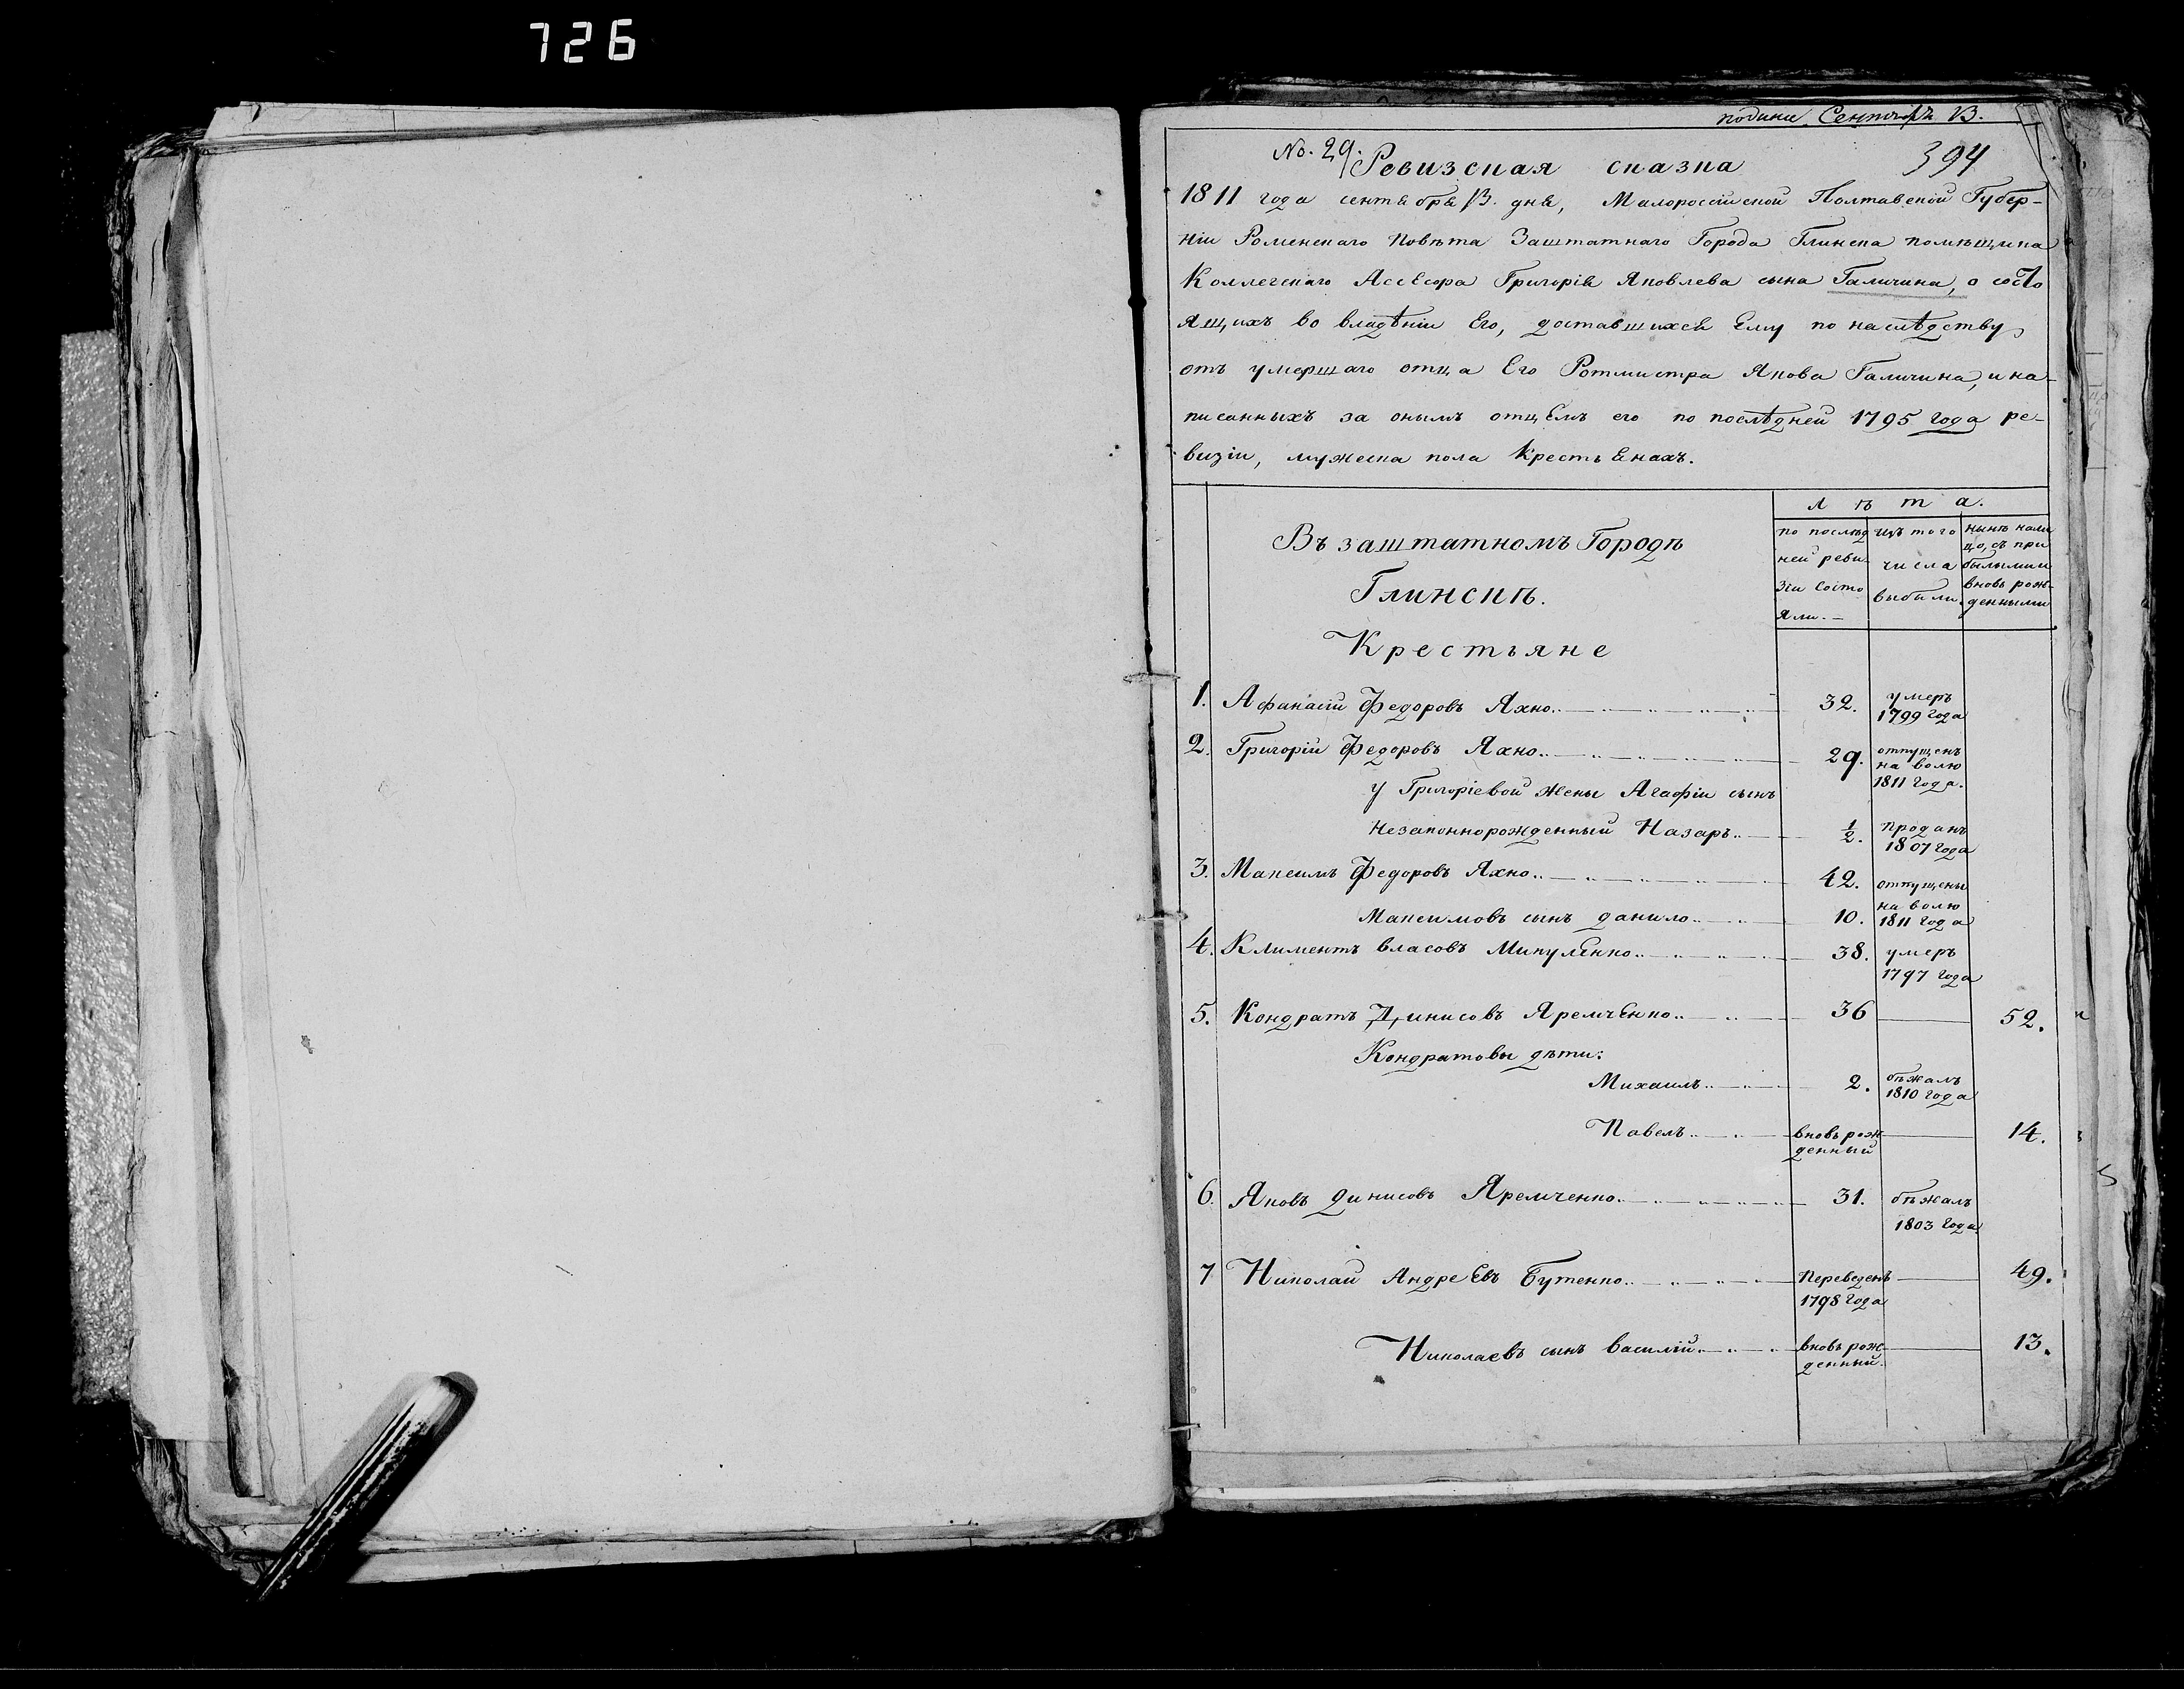 726
подана Сентября 13.
No. 29. Ревизская сказка 394
1811 года сентября 13. дня, Малороссійской Полтавской Губер-
ніи Роменскаго повѣта Заштатнаго Города Глинска помѣщика
Коллегскаго Ассесора Григорія Яковлева сына Галичина, о состо
ящихъ во владѣніи Его, доставшихся Ему по наслѣдству
отъ умершаго отца Его Ротмистра Якова Галичина, и на-
писанныхъ за онымъ отцемъ его по послѣдней 1795 года ре-
визіи, мужеска пола крестьянахъ.
Лѣта.
Въ заштатномъ Городѣ
Глинскѣ.
Крестьяне
по послѣд
ней реви-
зіи состо
яли.
изъ того
числа
выбыли.
нынѣ нали
цо, съ при
былыми и
вновь рож-
денными
1. Афанасій Федоровъ Яхно 32. умеръ
1799 года
2. Григорій Федоровъ Яхно 29. отпущенъ
на волю
1811 года.
у Григоріевой жены Агафіи сынъ
незаконнорожденный Назаръ 1/2. проданъ
1807 года
3. Максимъ Федоровъ Яхно 42. отпущены
на волю
Максимовъ сынъ данило 10. 1811 года
4. Климентъ власовъ Микуленко 38. умеръ
1797 года
5. Кондратъ Динисовъ Яремченко 36 — 52.
Кондратовы дѣти:
Михаилъ 2. бѣжалъ
1810 года
Павелъ вновь рож — 14.
денный
6. Яковъ динисовъ Яремченко 31. бѣжалъ
1803 года
7 Николай Андреевъ Бутенко Переведенъ — 49.
1798 года
Николаевъ сынъ василій вновь рож — 13.
денный.